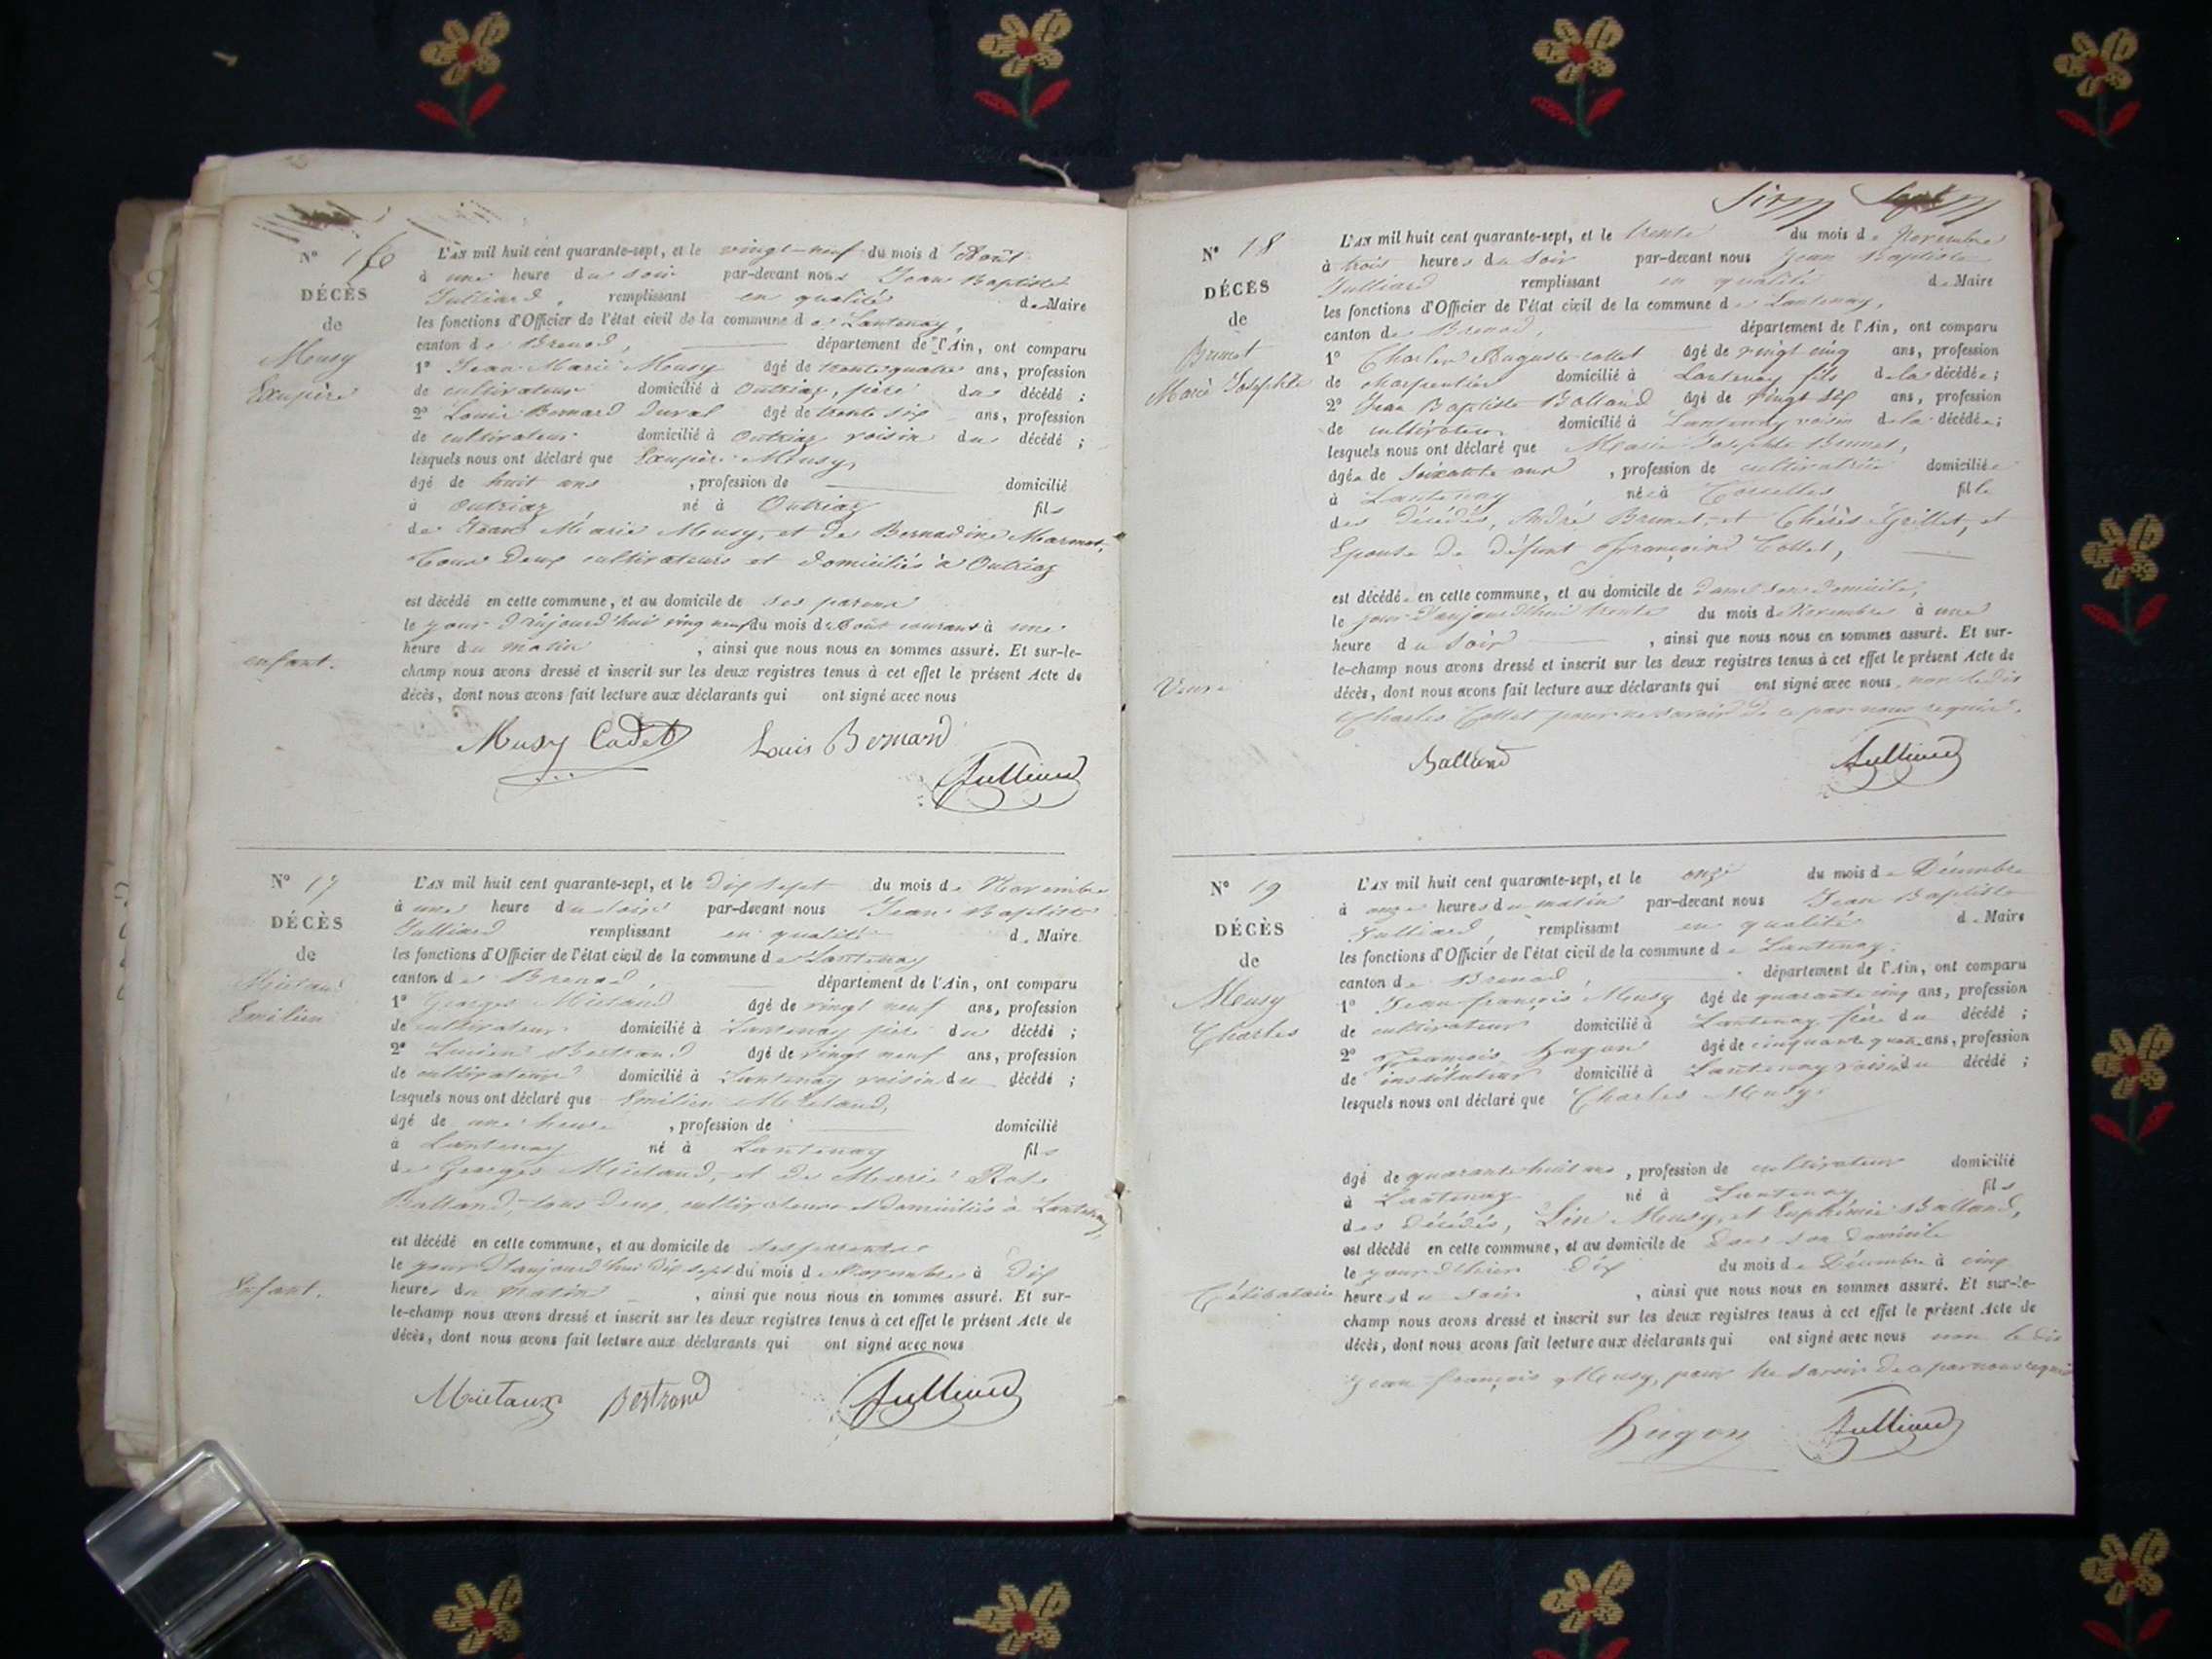 N° 16
DÉCÈS
de
Meusy
Exupère
enfant.
L'AN mil huit cent quarante-sept, et le vingt-neuf du mois d'Août
à une heure du soir par-devant nous Jean Baptiste
Julliard, remplissant en qualité de Maire
les fonctions d'Officier de l'état civil de la commune de Lantenay,
canton de Brenod, département de l'Ain, ont comparu
1° Jean Marie Meusy âgé de trente quatre ans, profession
de cultivateur domicilié à Outriaz, père du décédé ;
2° Louis Bernard Duval âgé de trente six ans, profession
de cultivateur domicilié à Outriaz voisin du décédé ;
lesquels nous ont déclaré que Exupère Meusy,
âgé de huit ans , profession de domicilié
à Outriaz né à Outriaz fils
de Jean Marie Meusy, et de Bernadine Marmet,
tous deux cultivateurs et domiciliés à Outriaz
est décédé en cette commune, et au domicile de ses parens
le jour d'aujourd'hui vingt neuf du mois d'Août courant à une
heure du matin , ainsi que nous nous en sommes assuré. Et sur-le-
champ nous avons dressé et inscrit sur les deux registres tenus à cet effet le présent Acte de
décès, dont nous avons fait lecture aux déclarants qui ont signé avec nous
Musy Cadet Louis Bernard
Julliard
N° 17
DÉCÈS
de
Emilien
Enfant.
L'AN mil huit cent quarante-sept, et le dix sept du mois de Novembre
à une heure du soir par-devant nous Jean Baptiste
Julliard remplissant en qualité de Maire
les fonctions d'Officier de l'état civil de la commune de Lantenay
canton de Brenod, département de l'Ain, ont comparu
1° Georges âgé de vingt neuf ans, profession
de cultivateur domicilié à Lantenay père du décédé ;
2° Lucien Bertrand âgé de vingt neuf ans, profession
de cultivateur domicilié à Lantenay voisin du décédé ;
lesquels nous ont déclaré que Emilien
âgé de une heure , profession de domicilié
à Lantenay né à Lantenay fils
de Georges et de Marie Rose
Balland, tous deux cultivateurs et domiciliés à Lantenay,
est décédé en cette commune, et au domicile de ses parents
le jour d'aujourd'hui dix sept du mois de Novembre à dix
heures du matin , ainsi que nous nous en sommes assuré. Et sur-
le-champ nous avons dressé et inscrit sur les deux registres tenus à cet effet le présent Acte de
décès, dont nous avons fait lecture aux déclarants qui ont signé avec nous
Bertrand Julliard
N° 18
DÉCÈS
de
Brunet
Marie Josephte
Veuve
L'AN mil huit cent quarante-sept, et le trente du mois de Novembre
à trois heures du soir par-devant nous Jean Baptiste
Julliard remplissant en qualité de Maire
les fonctions d'Officier de l'état civil de la commune de Lantenay,
canton de Brenod, département de l'Ain, ont comparu
1° Charles Auguste Collet âgé de vingt cinq ans, profession
de charpentier domicilié à Lantenay fils de la décédée ;
2° Jean Baptiste Balland âgé de vingt six ans, profession
de cultivateur domicilié à Lantenay voisin de la décédée ;
lesquels nous ont déclaré que Marie Josephte Brunet,
âgée de soixante ans , profession de cultivatrice domiciliée
à Lantenay , née à Corcelles fille
des décédés, André Brunet, et Thérèse Grillet, et
Epouse de défunt François Collet,
est décédée en cette commune, et au domicile de dans son domicile,
le jour d'aujourd'hui trente du mois de Novembre à une
heure du soir , ainsi que nous nous en sommes assuré. Et sur-
le-champ nous avons dressé et inscrit sur les deux registres tenus à cet effet le présent Acte de
décès, dont nous avons fait lecture aux déclarants qui ont signé avec nous, non le dit
Charles Collet pour ne savoir de ce par nous requis.
Balland Julliard
N° 19
DÉCÈS
de
Meusy
Charles
Célibataire
L'AN mil huit cent quarante-sept, et le onze du mois de Décembre
à onze heures du matin par-devant nous Jean Baptiste
Julliard, remplissant en qualité de Maire
les fonctions d'Officier de l'état civil de la commune de Lantenay.
canton de Brenod, département de l'Ain, ont comparu
1° Jean françois Meusy âgé de quarante cinq ans, profession
de cultivateur domicilié à Lantenay frère du décédé ;
2° François Hugon âgé de cinquante ans, profession
de instituteur domicilié à Lantenay voisin du décédé ;
lesquels nous ont déclaré que Charles Meusy
âgé de quarante huit ans , profession de cultivateur domicilié
à Lantenay né à Lantenay fils
des décédés, Lin Meusy, et Euphémie Balland,
est décédé en cette commune, et au domicile de dans son domicile
le jour d'hier dix du mois de Décembre à cinq
heures du soir , ainsi que nous nous en sommes assuré. Et sur-le-
champ nous avons dressé et inscrit sur les deux registres tenus à cet effet le présent Acte de
décès, dont nous avons fait lecture aux déclarants qui ont signé avec nous non le dit
Jean françois Meusy, pour ne savoir de ce par nous requis
Hugon Julliard